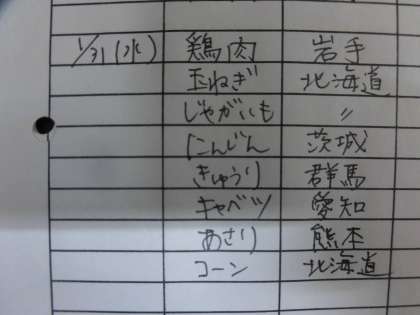 1/31(水) 鶏肉 岩手
玉ねぎ 北海道
じゃがいも 〃
にんじん 茨城
きゅうり 群馬
キャベツ 愛知
あさり 熊本
コーン 北海道